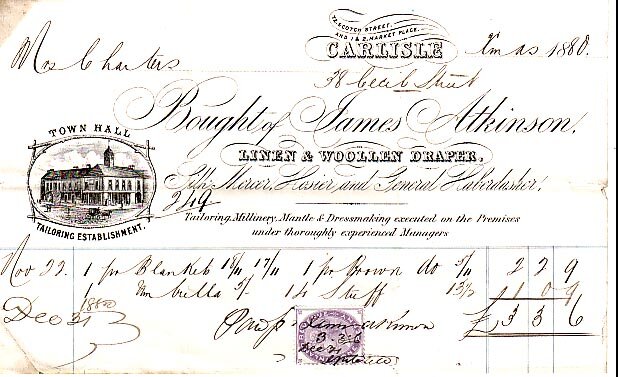 72, SCOTCH STREET,
AND 1 & 2, MARKET PLACE.
CARLISLE
Xmas 1880.
Mrs Charters
38 Cecil Street
Bought of James Atkinson,
LINEN & WOOLLEN DRAPER,
Silk Mercer, Hosier, and General Haberdasher,
TOWN HALL
TAILORING ESTABLISHMENT.
249
Tailoring, Millinery, Mantle & Dressmaking executed on the Premises
under thoroughly experienced Managers
Nov 22. 1 pr Blankets 18/11 17/11 1 pr Brown do 5/11 2 2 9
1 Umbrella 5/- 14 Stuff 13/ 1 0 9
1880
Dec 31
£3 3 6
3-3-6
Dec 31